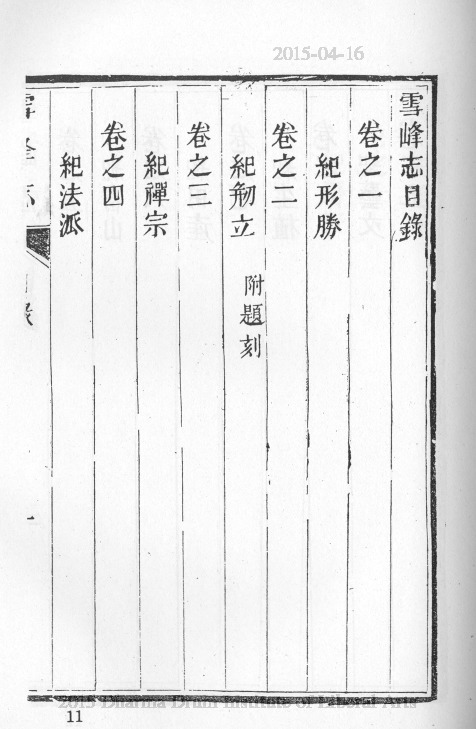 2015-04-16
雪峰志目錄
卷之一
紀形勝
卷之二
紀剏立 附題刻
卷之三
紀禪宗
卷之四
紀法派
雪峰志
目錄
一
2015 Dharma Drum Institute of Liberal Arts
11